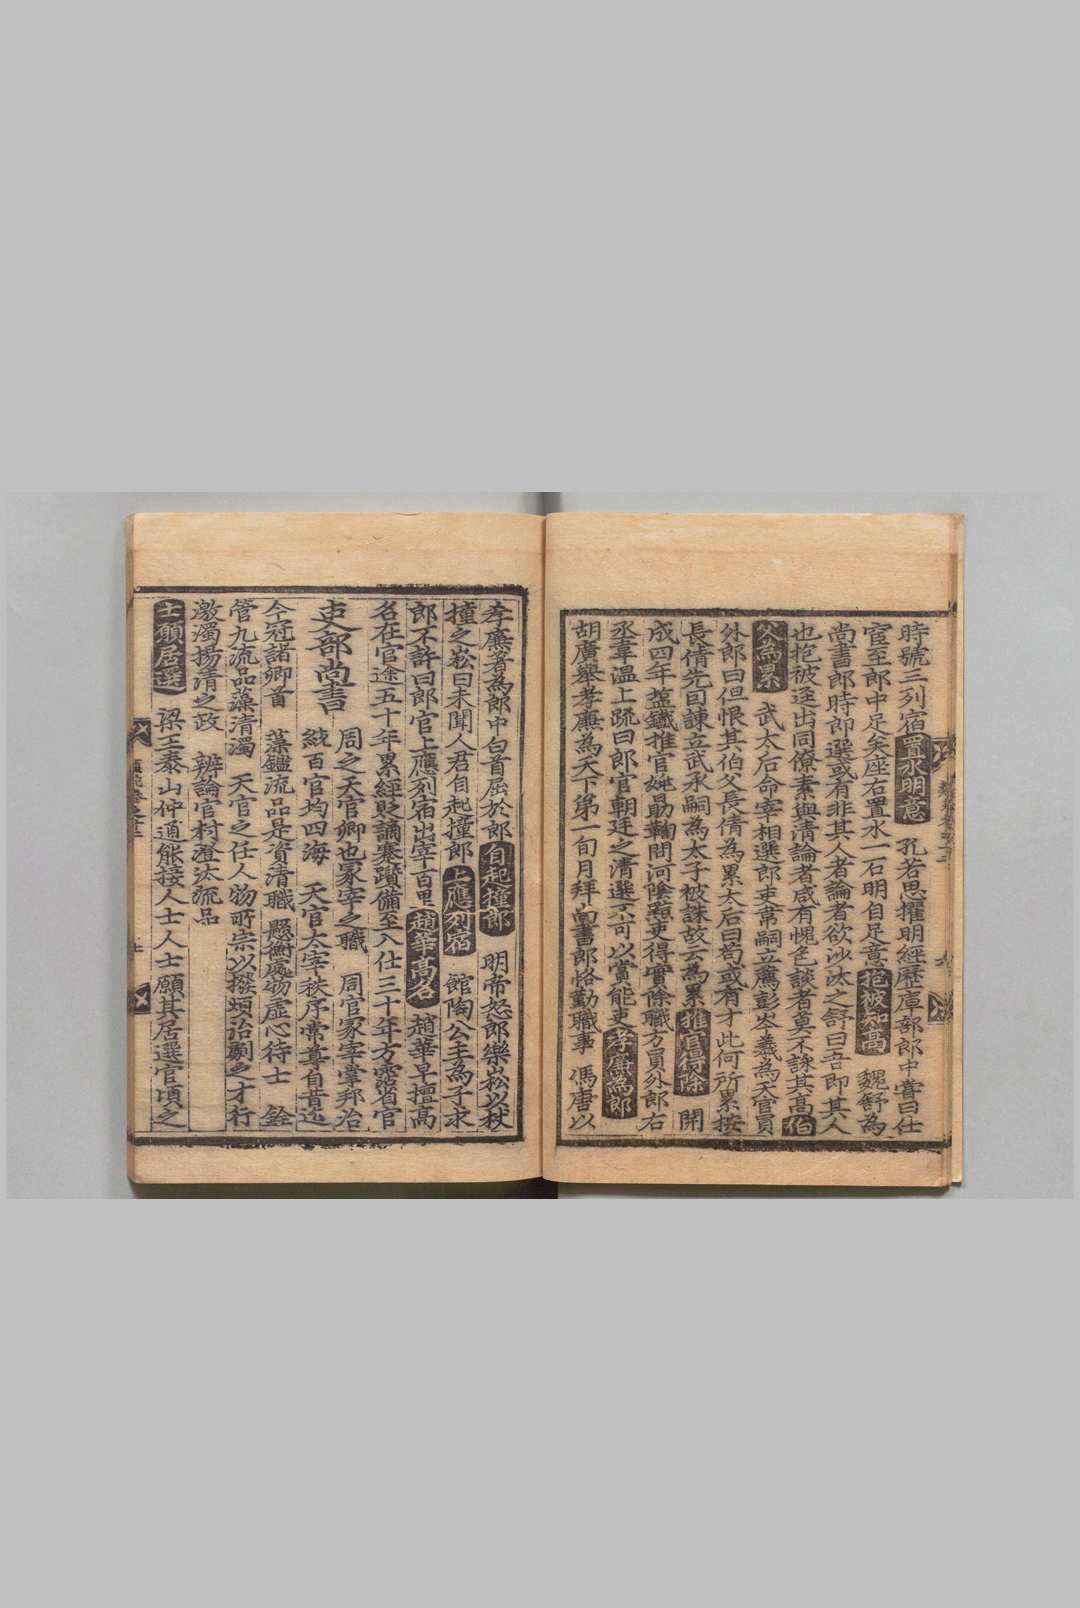 時號三列宿置水明意 孔若思擢明經歷庫部郎中嘗曰仕
宦至郎中足矣座右置水一石明自足意抱被知高 魏舒為
尚書郎時郎選或有非其人者論者欲沙汰之舒曰吾即其人
也抱被逕出同僚素與清論者咸有愧色談者莫不詠其高伯
父為累 武太后命宰相選郎吏韋嗣立薦彭岑羲為天官員
外郎曰但恨其伯父長倩為累太后曰苟或有才此何所累按
長倩先因諫立武承嗣為太子被誅故云為累推官得除 開
成四年塩鐵推官姚勗鞫問河陰 吏得實除職方員外郎右
丞韋溫上疏曰郎官朝廷之清選不可以賞能吏孝廉為郎
胡廣舉孝廉為天下第一旬月拜尚書郎恪勤職事 馮唐以
孝廉著為郎中白首屈於郎自起撞郎 明帝怒郎樂崧以杖
撞之崧曰未聞人君自起撞郎上應列宿 館陶公主為子求
郎不許曰郎官上應列宿出宰百里趙華高名 趙華早擅高
名在官途五十年累經貶謫蹇躓備至入仕三十年方霑省官
吏部尚書 周之天官卿也冢宰之職 周官冢宰掌邦治
統百官均四海 天官太宰秩序常尊自昔近
今冠諸卿首 藻鑑流品是資清職 懸衡處物虛心待士 銓
管九流品藻清濁 天官之任人物所宗以撥煩治劇之才行
激濁揚清之政 辨論官材澄汰流品
士願居選 梁王泰山仲通能接人士人士願其居選官頃之